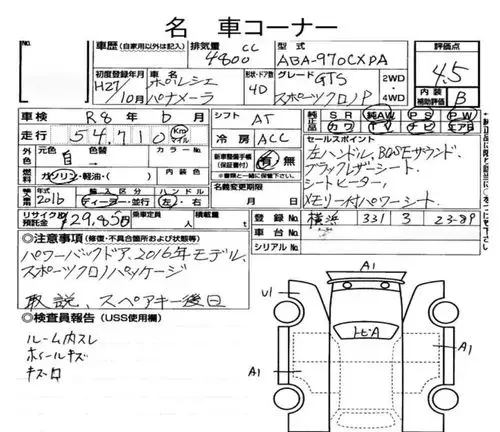 名 車コーナー
車歴 (自家用以外は記入) 排気量 4800 CC 型式 ABA-970CXPA 評価点 4.5
初度登録年月 H27/10月 車名 ポルシェ パナメーラ 形状・ドア数 4D グレード GTS スポーツクロノP 2WD・4WD 内装補助評価 B
車検 R8年 6月 シフト AT 純正品 SR 純AW PS PW
走行 54,710 Km マイル 冷房 ACC 純正品 カワ TV ナビ エアB
外装 元色 色 自 カラーNo. 新車整備手帳(保証書付) 有・無
セールスポイント
左ハンドル、BOSEサウンド、
ブラックレザーシート、
シートヒーター、
メモリー付パワーシート
燃料 ガソリン・軽油・( )
年式 2016 ディーラー・並行 ハンドル 左・右 名義変更期限 月 日
リサイクル預託金 ¥29,850 乗車定員 人 積載量 t 登録No. 横浜 331 ろ 23-89
車台
シリアルNo.
◎注意事項 (修復・不具合箇所および状態等)
パワーバックドア、2016年モデル、
スポーツクロノパッケージ
取説、スペアキー後日
◎検査員報告 (USS使用欄)
ルーム内スレ
ホイールキズ
キズ口
A1
U1
トビA
A1
A1
A1